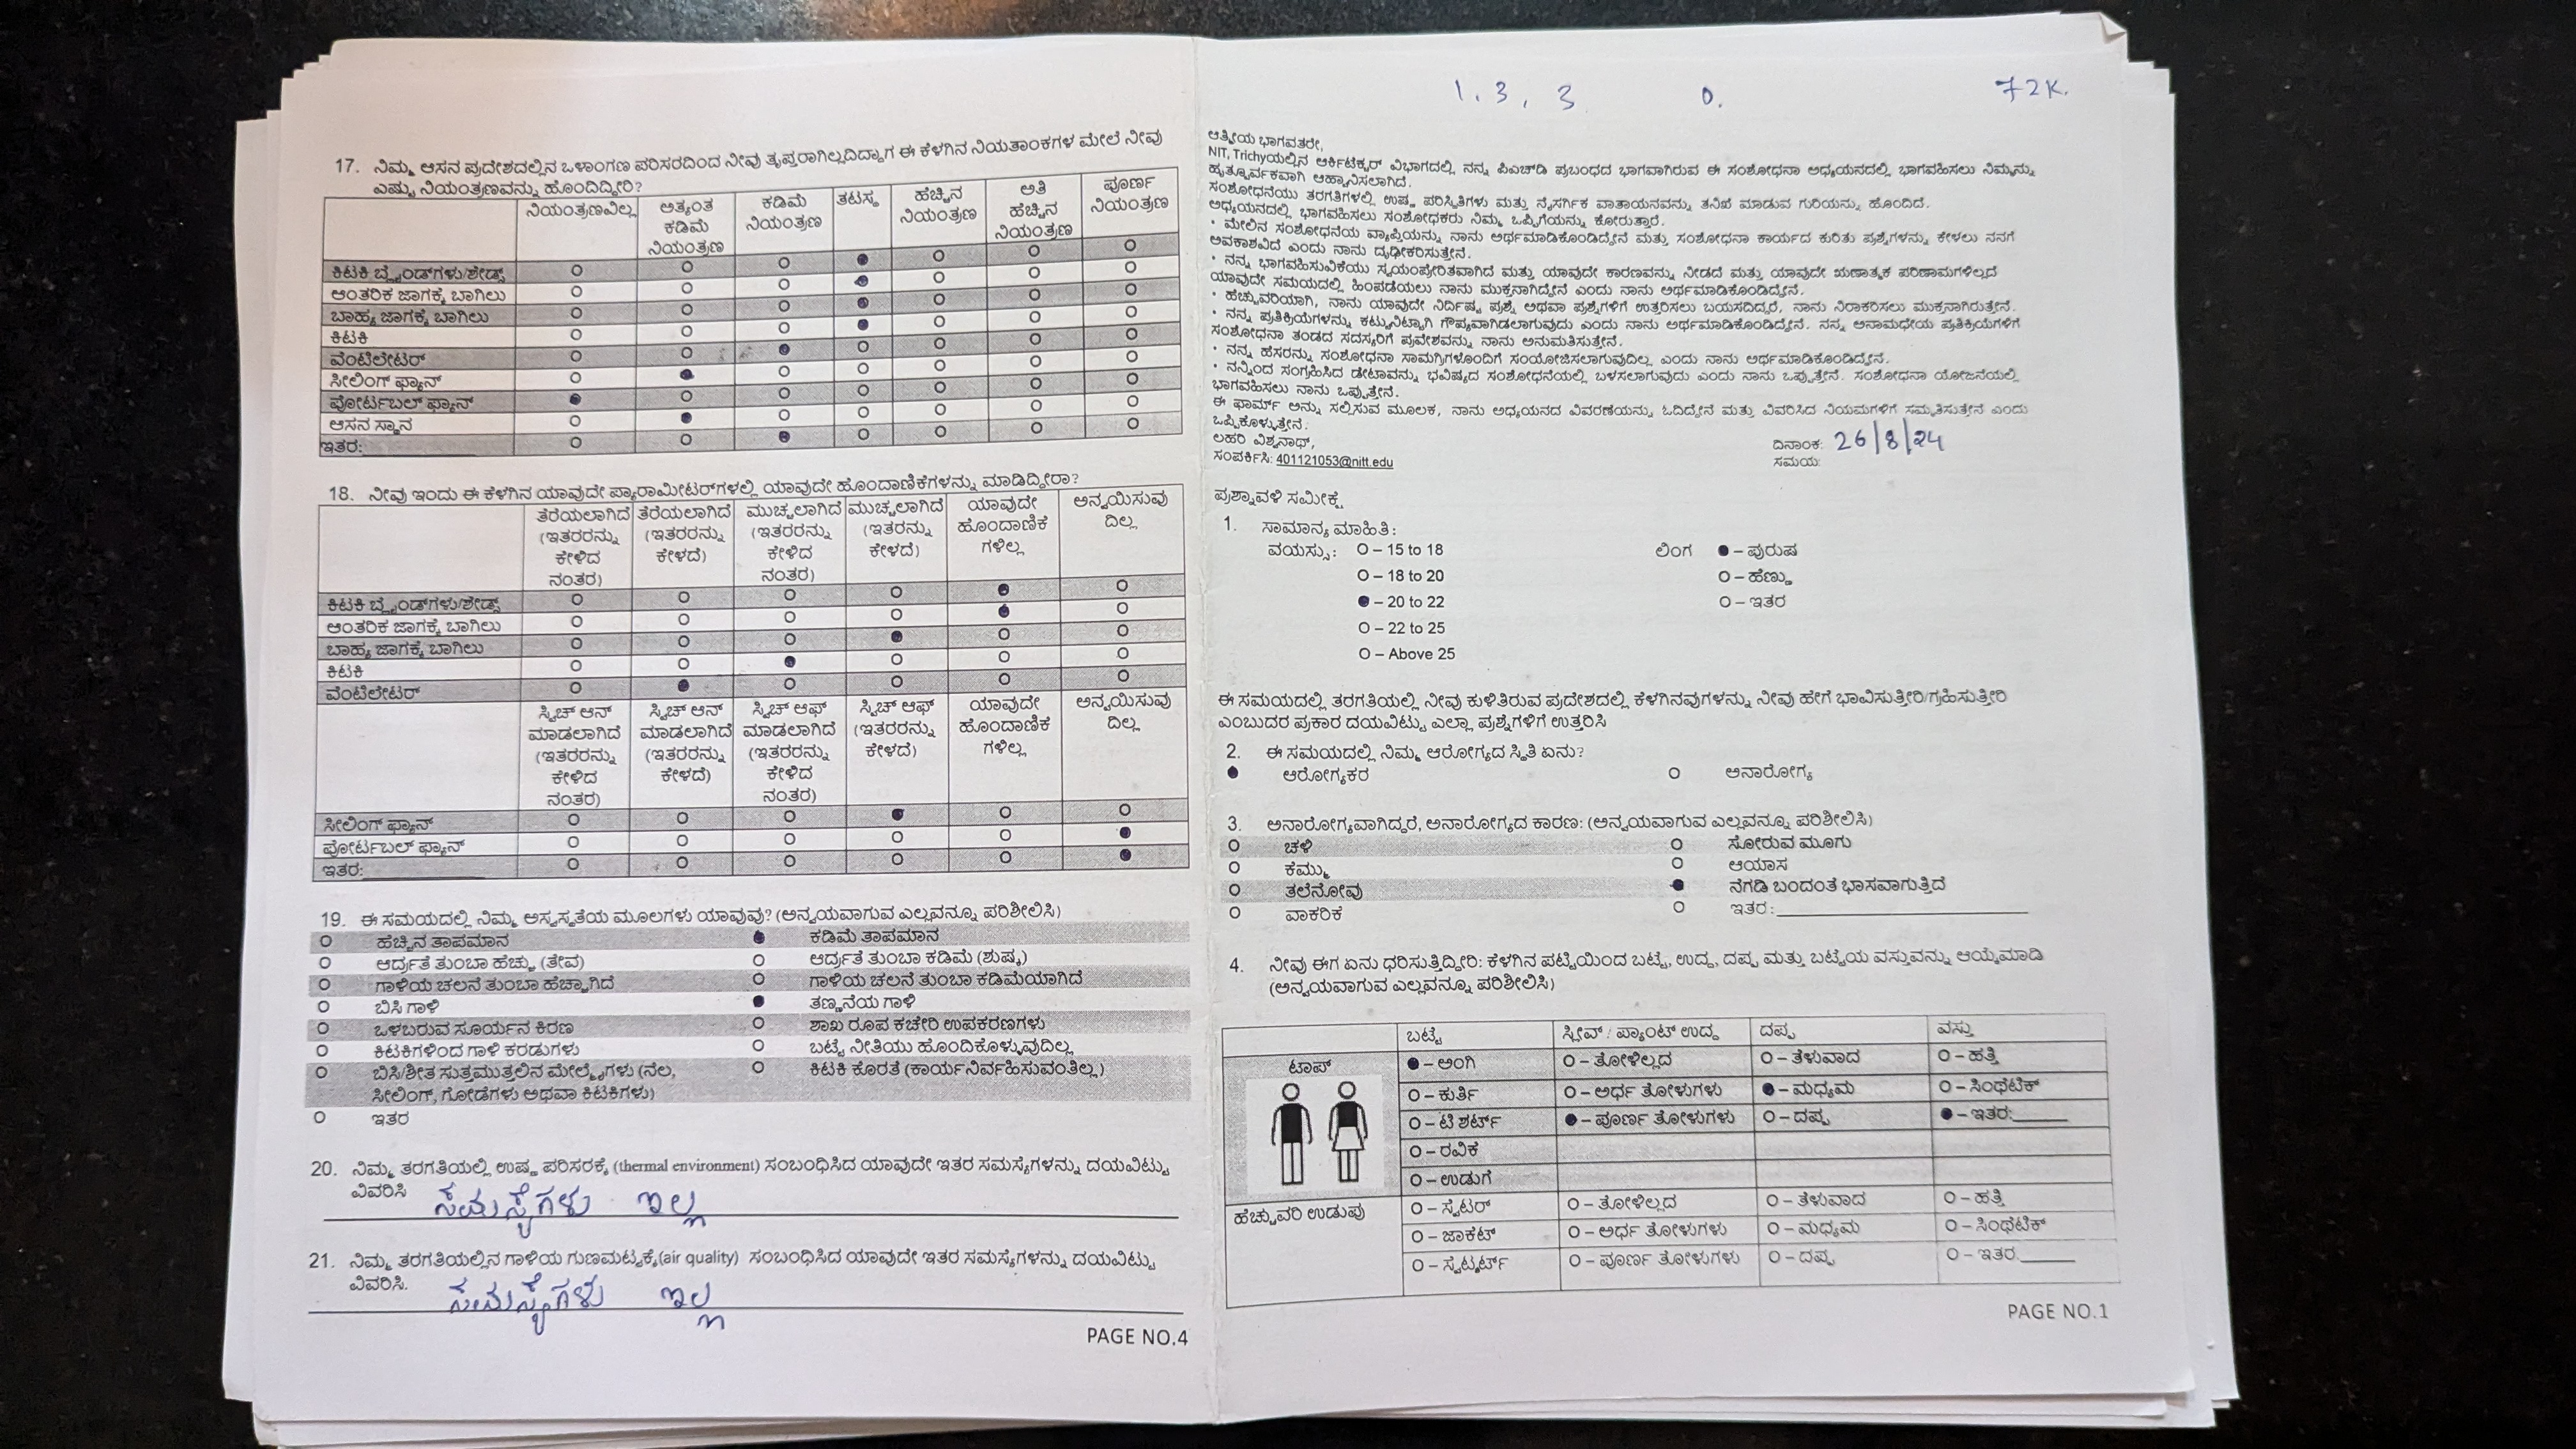 17. ನಿಮ್ಮ ಆಸನ ಪ್ರದೇಶದಲ್ಲಿನ ಒಳಾಂಗಣ ಪರಿಸರದಿಂದ ನೀವು ತೃಪ್ತರಾಗಿಲ್ಲದಿದ್ದಾಗ ಈ ಕೆಳಗಿನ ನಿಯತಾಂಕಗಳ ಮೇಲೆ ನೀವು
ಎಷ್ಟು ನಿಯಂತ್ರಣವನ್ನು ಹೊಂದಿದ್ದೀರಿ?
ನಿಯಂತ್ರಣವಿಲ್ಲ ಅತ್ಯಂತ ಕಡಿಮೆ ನಿಯಂತ್ರಣ ಕಡಿಮೆ ನಿಯಂತ್ರಣ ತಟಸ್ಥ ಹೆಚ್ಚಿನ ನಿಯಂತ್ರಣ ಅತಿ ಹೆಚ್ಚಿನ ನಿಯಂತ್ರಣ ಪೂರ್ಣ ನಿಯಂತ್ರಣ
ಕಿಟಕಿ ಬ್ಲೈಂಡ್‌ಗಳು/ಶೇಡ್ಸ್
ಆಂತರಿಕ ಜಾಗಕ್ಕೆ ಬಾಗಿಲು
ಬಾಹ್ಯ ಜಾಗಕ್ಕೆ ಬಾಗಿಲು
ಕಿಟಕಿ
ವೆಂಟಿಲೇಟರ್
ಸೀಲಿಂಗ್ ಫ್ಯಾನ್
ಪೋರ್ಟಬಲ್ ಫ್ಯಾನ್
ಆಸನ ಸ್ಥಾನ
ಇತರ:
18. ನೀವು ಇಂದು ಈ ಕೆಳಗಿನ ಯಾವುದೇ ಪ್ಯಾರಾಮೀಟರ್‌ಗಳಲ್ಲಿ ಯಾವುದೇ ಹೊಂದಾಣಿಕೆಗಳನ್ನು ಮಾಡಿದ್ದೀರಾ?
ತೆರೆಯಲಾಗಿದೆ (ಇತರರನ್ನು ಕೇಳಿದ ನಂತರ) ತೆರೆಯಲಾಗಿದೆ (ಇತರರನ್ನು ಕೇಳದೆ) ಮುಚ್ಚಲಾಗಿದೆ (ಇತರರನ್ನು ಕೇಳಿದ ನಂತರ) ಮುಚ್ಚಲಾಗಿದೆ (ಇತರರನ್ನು ಕೇಳದೆ) ಯಾವುದೇ ಹೊಂದಾಣಿಕೆ ಗಳಿಲ್ಲ ಅನ್ವಯಿಸುವು ದಿಲ್ಲ
ಕಿಟಕಿ ಬ್ಲೈಂಡ್‌ಗಳು/ಶೇಡ್ಸ್
ಆಂತರಿಕ ಜಾಗಕ್ಕೆ ಬಾಗಿಲು
ಬಾಹ್ಯ ಜಾಗಕ್ಕೆ ಬಾಗಿಲು
ಕಿಟಕಿ
ವೆಂಟಿಲೇಟರ್
ಸ್ವಿಚ್ ಆನ್ ಮಾಡಲಾಗಿದೆ (ಇತರರನ್ನು ಕೇಳಿದ ನಂತರ) ಸ್ವಿಚ್ ಆನ್ ಮಾಡಲಾಗಿದೆ (ಇತರರನ್ನು ಕೇಳದೆ) ಸ್ವಿಚ್ ಆಫ್ ಮಾಡಲಾಗಿದೆ (ಇತರರನ್ನು ಕೇಳಿದ ನಂತರ) ಸ್ವಿಚ್ ಆಫ್ (ಇತರರನ್ನು ಕೇಳದೆ) ಯಾವುದೇ ಹೊಂದಾಣಿಕೆ ಗಳಿಲ್ಲ ಅನ್ವಯಿಸುವು ದಿಲ್ಲ
ಸೀಲಿಂಗ್ ಫ್ಯಾನ್
ಪೋರ್ಟಬಲ್ ಫ್ಯಾನ್
ಇತರ:
19. ಈ ಸಮಯದಲ್ಲಿ ನಿಮ್ಮ ಅಸ್ವಸ್ಥತೆಯ ಮೂಲಗಳು ಯಾವುವು? (ಅನ್ವಯವಾಗುವ ಎಲ್ಲವನ್ನೂ ಪರಿಶೀಲಿಸಿ)
ಹೆಚ್ಚಿನ ತಾಪಮಾನ ಕಡಿಮೆ ತಾಪಮಾನ
ಆರ್ದ್ರತೆ ತುಂಬಾ ಹೆಚ್ಚು (ತೇವ) ಆರ್ದ್ರತೆ ತುಂಬಾ ಕಡಿಮೆ (ಶುಷ್ಕ)
ಗಾಳಿಯ ಚಲನೆ ತುಂಬಾ ಹೆಚ್ಚಾಗಿದೆ ಗಾಳಿಯ ಚಲನೆ ತುಂಬಾ ಕಡಿಮೆಯಾಗಿದೆ
ಬಿಸಿ ಗಾಳಿ ತಣ್ಣನೆಯ ಗಾಳಿ
ಒಳಬರುವ ಸೂರ್ಯನ ಕಿರಣ ಶಾಖ ರೂಪ ಕಚೇರಿ ಉಪಕರಣಗಳು
ಕಿಟಕಿಗಳಿಂದ ಗಾಳಿ ಕರಡುಗಳು ಬಟ್ಟೆ ನೀತಿಯು ಹೊಂದಿಕೊಳ್ಳುವುದಿಲ್ಲ
ಬಿಸಿ/ಶೀತ ಸುತ್ತಮುತ್ತಲಿನ ಮೇಲ್ಮೈಗಳು (ನೆಲ, ಕಿಟಕಿ ಕೊರತೆ (ಕಾರ್ಯನಿರ್ವಹಿಸುವಂತಿಲ್ಲ)
ಸೀಲಿಂಗ್, ಗೋಡೆಗಳು ಅಥವಾ ಕಿಟಕಿಗಳು)
ಇತರ
20. ನಿಮ್ಮ ತರಗತಿಯಲ್ಲಿ ಉಷ್ಣ ಪರಿಸರಕ್ಕೆ (thermal environment) ಸಂಬಂಧಿಸಿದ ಯಾವುದೇ ಇತರ ಸಮಸ್ಯೆಗಳನ್ನು ದಯವಿಟ್ಟು
ವಿವರಿಸಿ ಸಮಸ್ಯೆಗಳು ಇಲ್ಲ
21. ನಿಮ್ಮ ತರಗತಿಯಲ್ಲಿನ ಗಾಳಿಯ ಗುಣಮಟ್ಟಕ್ಕೆ (air quality) ಸಂಬಂಧಿಸಿದ ಯಾವುದೇ ಇತರ ಸಮಸ್ಯೆಗಳನ್ನು ದಯವಿಟ್ಟು
ವಿವರಿಸಿ. ಸಮಸ್ಯೆಗಳು ಇಲ್ಲ
PAGE NO.4
1. 3, 3 0. 72K.
ಆತ್ಮೀಯ ಭಾಗವತರೇ,
NIT, Trichyಯಲ್ಲಿನ ಆರ್ಕಿಟೆಕ್ಚರ್ ವಿಭಾಗದಲ್ಲಿ ನನ್ನ ಪಿಎಚ್‌ಡಿ ಪ್ರಬಂಧದ ಭಾಗವಾಗಿರುವ ಈ ಸಂಶೋಧನಾ ಅಧ್ಯಯನದಲ್ಲಿ ಭಾಗವಹಿಸಲು ನಿಮ್ಮನ್ನು
ಹೃತ್ಪೂರ್ವಕವಾಗಿ ಆಹ್ವಾನಿಸಲಾಗಿದೆ.
ಸಂಶೋಧನೆಯು ತರಗತಿಗಳಲ್ಲಿ ಉಷ್ಣ ಪರಿಸ್ಥಿತಿಗಳು ಮತ್ತು ನೈಸರ್ಗಿಕ ವಾತಾಯನವನ್ನು ತನಿಖೆ ಮಾಡುವ ಗುರಿಯನ್ನು ಹೊಂದಿದೆ.
ಅಧ್ಯಯನದಲ್ಲಿ ಭಾಗವಹಿಸಲು ಸಂಶೋಧಕರು ನಿಮ್ಮ ಒಪ್ಪಿಗೆಯನ್ನು ಕೋರುತ್ತಾರೆ.
• ಮೇಲಿನ ಸಂಶೋಧನೆಯ ವ್ಯಾಪ್ತಿಯನ್ನು ನಾನು ಅರ್ಥಮಾಡಿಕೊಂಡಿದ್ದೇನೆ ಮತ್ತು ಸಂಶೋಧನಾ ಕಾರ್ಯದ ಕುರಿತು ಪ್ರಶ್ನೆಗಳನ್ನು ಕೇಳಲು ನನಗೆ
ಅವಕಾಶವಿದೆ ಎಂದು ನಾನು ದೃಢೀಕರಿಸುತ್ತೇನೆ.
• ನನ್ನ ಭಾಗವಹಿಸುವಿಕೆಯು ಸ್ವಯಂಪ್ರೇರಿತವಾಗಿದೆ ಮತ್ತು ಯಾವುದೇ ಕಾರಣವನ್ನು ನೀಡದೆ ಮತ್ತು ಯಾವುದೇ ಋಣಾತ್ಮಕ ಪರಿಣಾಮಗಳಿಲ್ಲದೆ
ಯಾವುದೇ ಸಮಯದಲ್ಲಿ ಹಿಂಪಡೆಯಲು ನಾನು ಮುಕ್ತನಾಗಿದ್ದೇನೆ ಎಂದು ನಾನು ಅರ್ಥಮಾಡಿಕೊಂಡಿದ್ದೇನೆ.
• ಹೆಚ್ಚುವರಿಯಾಗಿ, ನಾನು ಯಾವುದೇ ನಿರ್ದಿಷ್ಟ ಪ್ರಶ್ನೆ ಅಥವಾ ಪ್ರಶ್ನೆಗಳಿಗೆ ಉತ್ತರಿಸಲು ಬಯಸದಿದ್ದರೆ, ನಾನು ನಿರಾಕರಿಸಲು ಮುಕ್ತನಾಗಿರುತ್ತೇನೆ.
• ನನ್ನ ಪ್ರತಿಕ್ರಿಯೆಗಳನ್ನು ಕಟ್ಟುನಿಟ್ಟಾಗಿ ಗೌಪ್ಯವಾಗಿಡಲಾಗುವುದು ಎಂದು ನಾನು ಅರ್ಥಮಾಡಿಕೊಂಡಿದ್ದೇನೆ. ನನ್ನ ಅನಾಮಧೇಯ ಪ್ರತಿಕ್ರಿಯೆಗಳಿಗೆ
ಸಂಶೋಧನಾ ತಂಡದ ಸದಸ್ಯರಿಗೆ ಪ್ರವೇಶವನ್ನು ನಾನು ಅನುಮತಿಸುತ್ತೇನೆ.
• ನನ್ನ ಹೆಸರನ್ನು ಸಂಶೋಧನಾ ಸಾಮಗ್ರಿಗಳೊಂದಿಗೆ ಸಂಯೋಜಿಸಲಾಗುವುದಿಲ್ಲ ಎಂದು ನಾನು ಅರ್ಥಮಾಡಿಕೊಂಡಿದ್ದೇನೆ.
• ನನ್ನಿಂದ ಸಂಗ್ರಹಿಸಿದ ಡೇಟಾವನ್ನು ಭವಿಷ್ಯದ ಸಂಶೋಧನೆಯಲ್ಲಿ ಬಳಸಲಾಗುವುದು ಎಂದು ನಾನು ಒಪ್ಪುತ್ತೇನೆ. ಸಂಶೋಧನಾ ಯೋಜನೆಯಲ್ಲಿ
ಭಾಗವಹಿಸಲು ನಾನು ಒಪ್ಪುತ್ತೇನೆ.
ಈ ಫಾರ್ಮ್ ಅನ್ನು ಸಲ್ಲಿಸುವ ಮೂಲಕ, ನಾನು ಅಧ್ಯಯನದ ವಿವರಣೆಯನ್ನು ಓದಿದ್ದೇನೆ ಮತ್ತು ವಿವರಿಸಿದ ನಿಯಮಗಳಿಗೆ ಸಮ್ಮತಿಸುತ್ತೇನೆ ಎಂದು
ಒಪ್ಪಿಕೊಳ್ಳುತ್ತೇನೆ.
ಲಹರಿ ವಿಶ್ವನಾಥ್, ದಿನಾಂಕ: 26/8/24
ಸಂಪರ್ಕಿಸಿ: 401121053@nitt.edu ಸಮಯ:
ಪ್ರಶ್ನಾವಳಿ ಸಮೀಕ್ಷೆ
1. ಸಾಮಾನ್ಯ ಮಾಹಿತಿ:
ವಯಸ್ಸು: – 15 to 18 ಲಿಂಗ – ಪುರುಷ
– 18 to 20 – ಹೆಣ್ಣು
– 20 to 22 – ಇತರ
– 22 to 25
– Above 25
ಈ ಸಮಯದಲ್ಲಿ ತರಗತಿಯಲ್ಲಿ ನೀವು ಕುಳಿತಿರುವ ಪ್ರದೇಶದಲ್ಲಿ ಕೆಳಗಿನವುಗಳನ್ನು ನೀವು ಹೇಗೆ ಭಾವಿಸುತ್ತೀರಿ/ಗ್ರಹಿಸುತ್ತೀರಿ
ಎಂಬುದರ ಪ್ರಕಾರ ದಯವಿಟ್ಟು ಎಲ್ಲಾ ಪ್ರಶ್ನೆಗಳಿಗೆ ಉತ್ತರಿಸಿ
2. ಈ ಸಮಯದಲ್ಲಿ ನಿಮ್ಮ ಆರೋಗ್ಯದ ಸ್ಥಿತಿ ಏನು?
ಆರೋಗ್ಯಕರ ಅನಾರೋಗ್ಯ
3. ಅನಾರೋಗ್ಯವಾಗಿದ್ದರೆ, ಅನಾರೋಗ್ಯದ ಕಾರಣ: (ಅನ್ವಯವಾಗುವ ಎಲ್ಲವನ್ನೂ ಪರಿಶೀಲಿಸಿ)
ಚಳಿ ಸೋರುವ ಮೂಗು
ಕೆಮ್ಮು ಆಯಾಸ
ತಲೆನೋವು ನೆಗಡಿ ಬಂದಂತೆ ಭಾಸವಾಗುತ್ತಿದೆ
ವಾಕರಿಕೆ ಇತರ:
4. ನೀವು ಈಗ ಏನು ಧರಿಸುತ್ತಿದ್ದೀರಿ: ಕೆಳಗಿನ ಪಟ್ಟಿಯಿಂದ ಬಟ್ಟೆ, ಉದ್ದ, ದಪ್ಪ ಮತ್ತು ಬಟ್ಟೆಯ ವಸ್ತುವನ್ನು ಆಯ್ಕೆಮಾಡಿ
(ಅನ್ವಯವಾಗುವ ಎಲ್ಲವನ್ನೂ ಪರಿಶೀಲಿಸಿ)
ಬಟ್ಟೆ ಸ್ಲೀವ್ / ಪ್ಯಾಂಟ್ ಉದ್ದ ದಪ್ಪ ವಸ್ತು
ಟಾಪ್ – ಅಂಗಿ – ತೋಳಿಲ್ಲದ – ತೆಳುವಾದ – ಹತ್ತಿ
– ಕುರ್ತಿ – ಅರ್ಧ ತೋಳುಗಳು – ಮಧ್ಯಮ – ಸಿಂಥೆಟಿಕ್
– ಟಿ ಶರ್ಟ್ – ಪೂರ್ಣ ತೋಳುಗಳು – ದಪ್ಪ – ಇತರ:
– ರವಿಕೆ
– ಉಡುಗೆ
ಹೆಚ್ಚುವರಿ ಉಡುಪು – ಸ್ವೆಟರ್ – ತೋಳಿಲ್ಲದ – ತೆಳುವಾದ – ಹತ್ತಿ
– ಜಾಕೆಟ್ – ಅರ್ಧ ತೋಳುಗಳು – ಮಧ್ಯಮ – ಸಿಂಥೆಟಿಕ್
– ಸ್ವೆಟ್ಶರ್ಟ್ – ಪೂರ್ಣ ತೋಳುಗಳು – ದಪ್ಪ – ಇತರ
PAGE NO.1